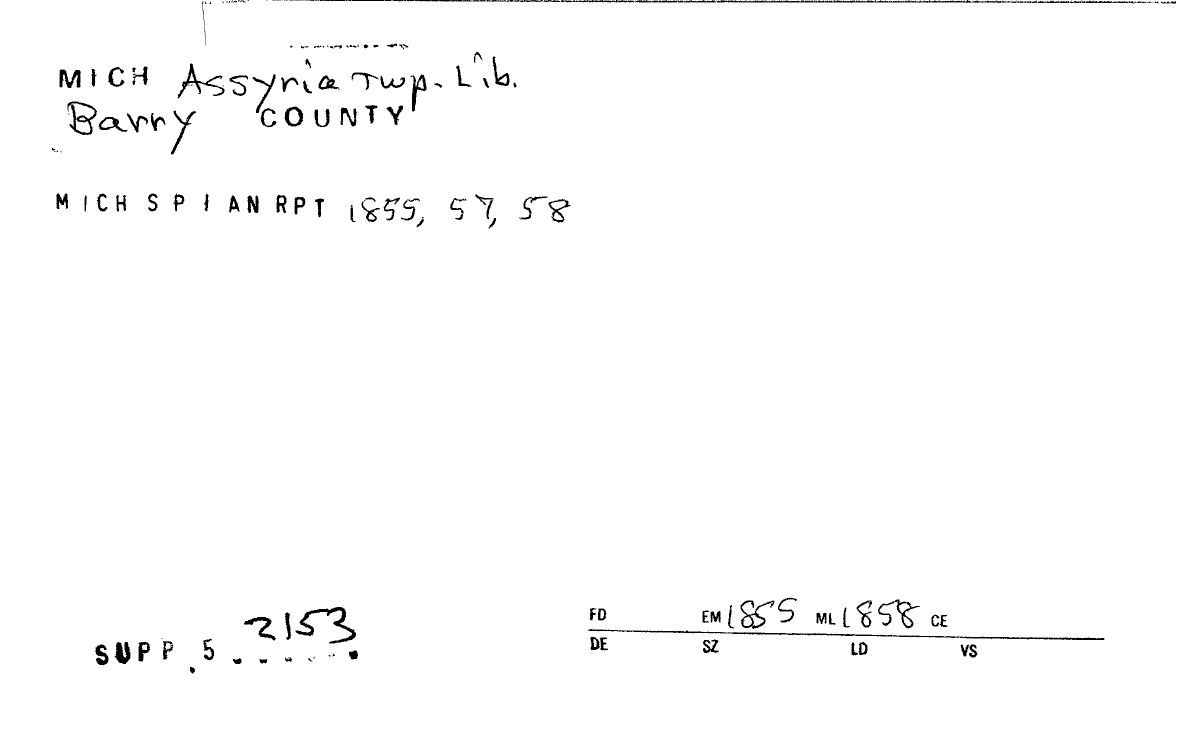 MICH Assyria Twp. Lib.
Barry COUNTY
MICH S P I AN RPT 1855, 57, 58
SUPP. 5 2153
FD EM 1855 ML 1858 CE
DE SZ LD VS